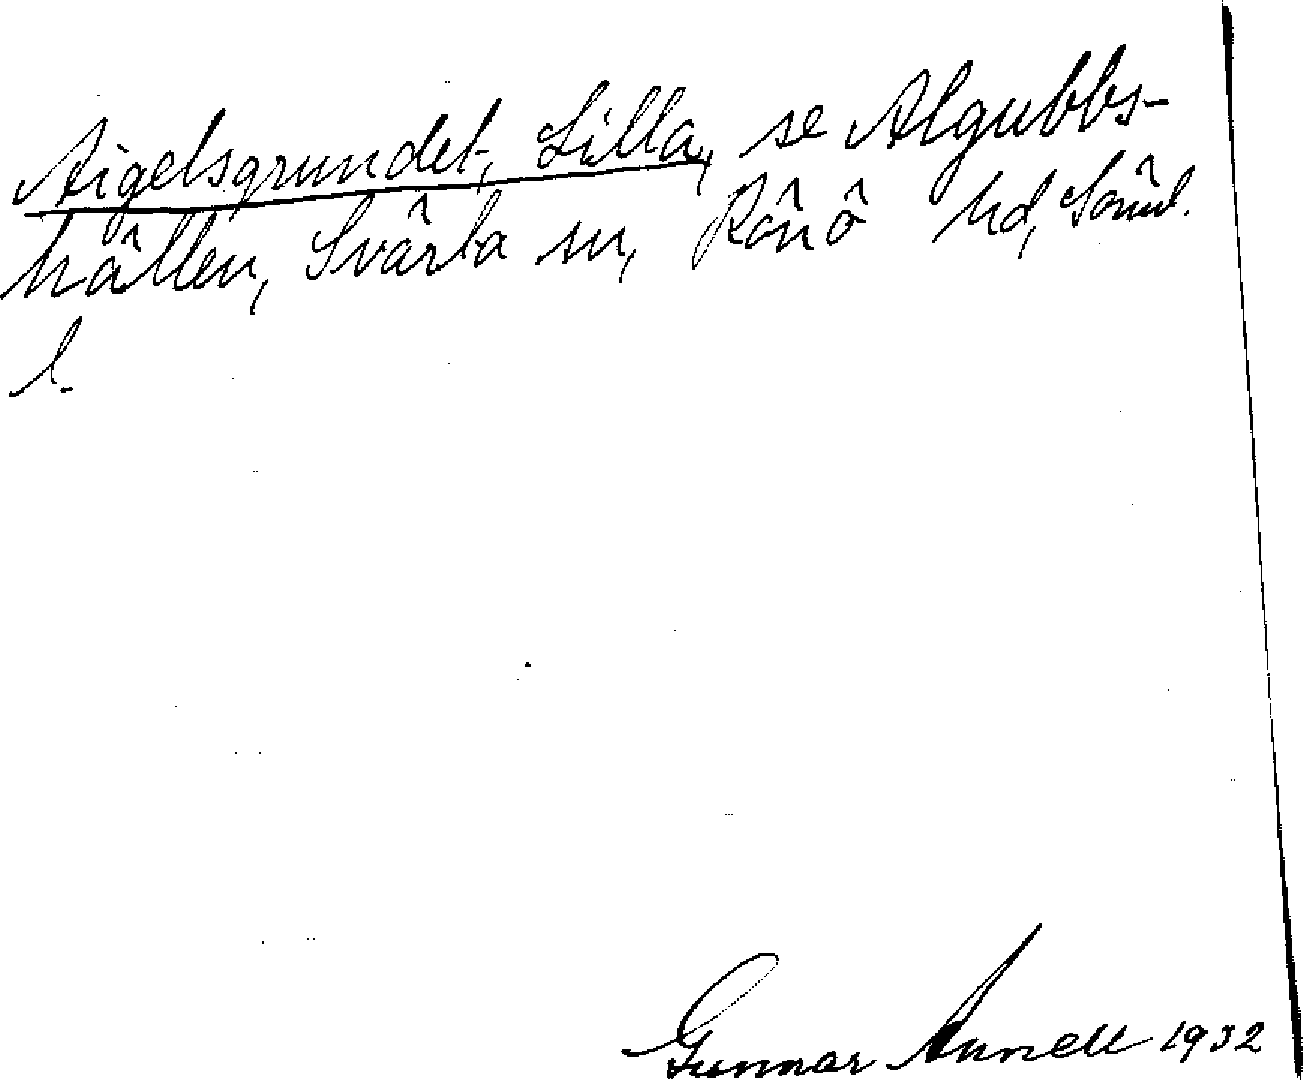 Aigelsgrundet, Lilla, se Algubbs-
hällen, Svärta sn, Rönö hd, Söml.
l.
Gunnar Annell 1932